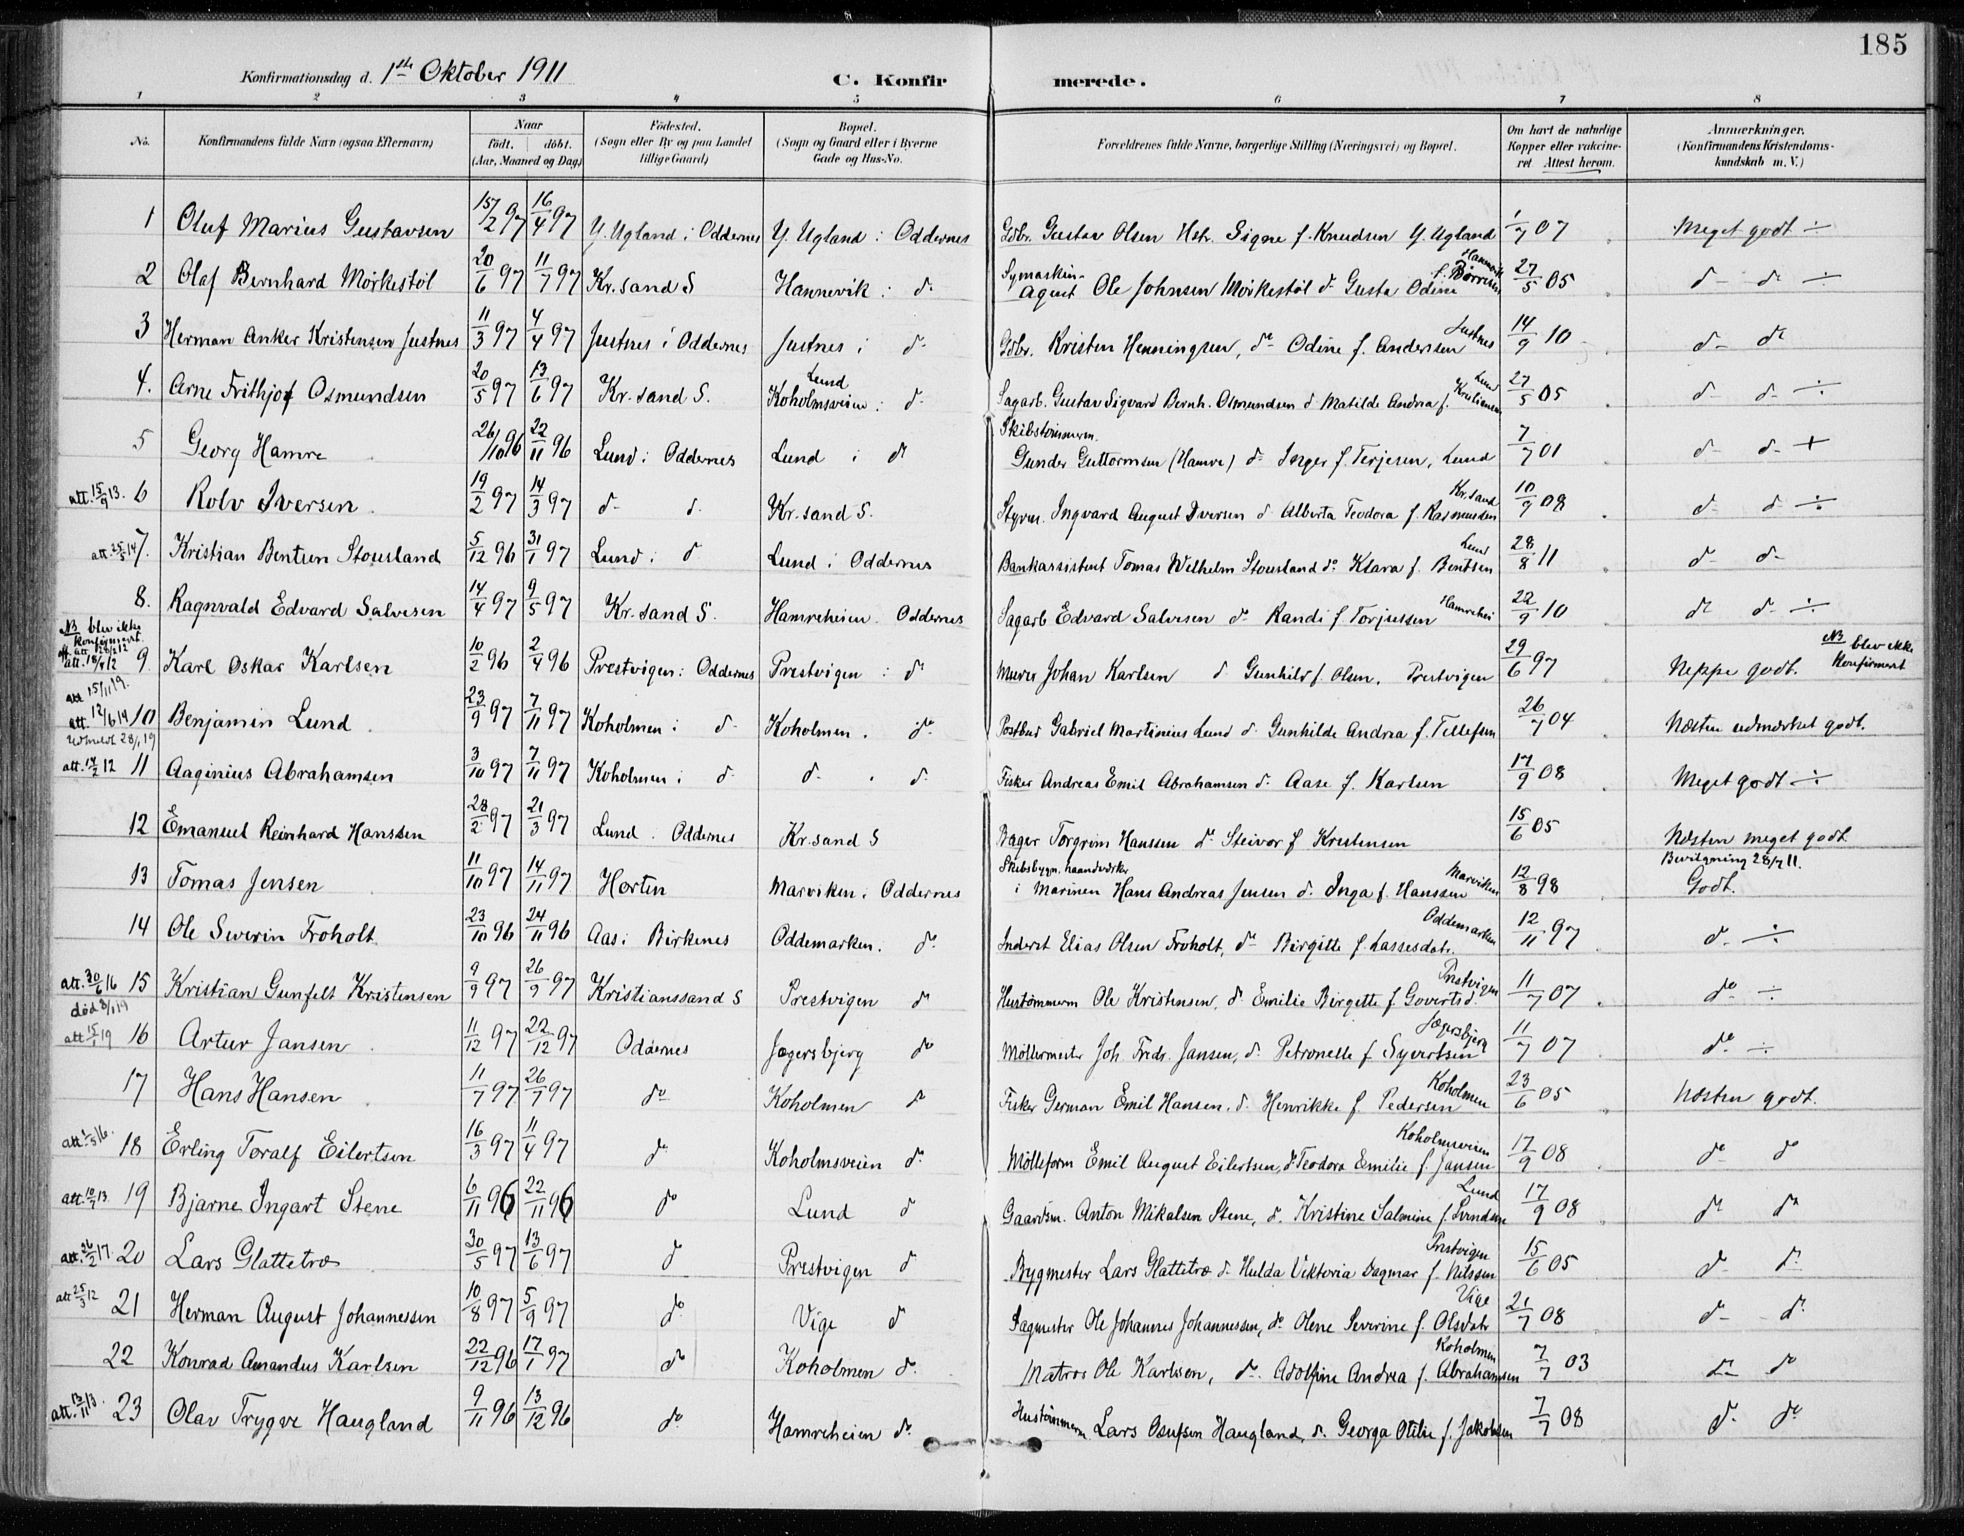 185
Konfirmationsdag d. 1ste Oktober 1911 C. Konfirmerede.
1 2 3 4 5 6 7 8
No. Konfirmandens fulde Navn (ogsaa Efternavn) Naar födt. döbt. (Aar, Maaned og Dag) Födested. (Sogn eller By og paa Landet tillige Gaard) Bopæl. (Sogn og Gaard eller i Byerne Gade og Hus-No. Forældrenes fulde Navne, borgerlige Stilling (Næringsvei) og Bopæl. Om havt de naturlige Kopper eller vakcineret. Attest herom. Anmærkninger. (Konfirmandens Kristendomskundskab m. V.)
1 Oluf Marius Gustavsen 15/2 97 16/4 97 Y. Ugland i Oddernes Y. Ugland i Oddernes Gdbr. Gustav Olsen Hstr. Signe f. Knudsen Y. Ugland 1/7 07 Meget godt ÷
2 Olaf Bernhard Mörkestöl 20/6 97 11/7 97 Kr.sand S Hannevik i do Symaskin-Agent Ole Johnsen Mörkestöl do Gusta Odine f. Börresen Hannevik 27/5 05 do do ÷
3 Herman Anker Kristensen Justnes 11/3 97 4/4 97 Justnes i Oddernes Justnes i do Gdbr. Kristen Henningsen, do Odine f. Andersen Justnes 14/9 10 do do
4. Arne Frithjof Osmundsen 20/5 97 13/6 97 Kr.sand S. Lund Koholmsveien i do Sagarb. Gustav Sigvard Bernh. Osmundsen do Matilde Andrea f. Kristiansen Lund 27/5 05 do do ÷
5 Georg Hamre 26/10 96 22/11 96 Lund i Oddernes Lund i do Skibstömmerm. Gunder Guttormsen (Hamre) do Inger f. Terjesen, Lund 7/7 01 do do +
att. 15/9 13. 6 Rolv Iversen 19/2 97 14/3 97 do do Kr.sand S. Styrm. Ingvard August Iversen do Alberta Teodora f. Rasmussen Kr.sand 10/9 08 do do ÷
att. 25/5 14 7. Kristian Bentsen Stousland 5/12 96 31/1 97 Lund i do Lund i Oddernes Bankassistent Tomas Wilhelm Stousland do Klara f. Bentsen Lund 28/8 11 do do
8. Ragnvald Edvard Salvesen 14/4 97 9/5 97 Kr.sand S. Hamreheien Oddernes Sagarb Edvard Salvesen do Randi f. Torjussen Hamrehei 22/9 10 do do ÷
NB blev ikke konfirmeret. att. 18/9 12 9 Karl Oskar Karlsen 10/2 96 2/4 96 Prestvigen i Oddernes Prestvigen i do Murer Johan Karlsen do Gunhild f. Olsen, Prestvigen 29/6 97 Neppe godt. NB blev ikke konfirmeret
att 15/11 19. att. 12/6 14 Udmeldt 28/1 19 10 Benjamin Lund 23/9 97 7/11 97 Koholmen i do Koholmen. do Postbud Gabriel Martinius Lund do Gunhilde Andrea f. Tellefsen 26/7 04 Næsten udmærket godt.
att. 14/2 12 11 Aaginius Abrahamsen 3/10 97 7/11 97 Koholmen i do do do Fisker Andreas Emil Abrahamsen do Aase f. Karlsen 17/9 08 Meget godt ÷
12 Emanuel Reinhard Hanssen 28/2 97 21/3 97 Lund. Oddernes Kr.sand S Bager Torgrim Hanssen do Steivor f Kristensen 15/6 05 Næsten meget godt
13 Tomas Jensen 11/10 97 14/11 97 Horten Marviken i Oddernes Skibsbygn. haandverker i Marinen Hans Andreas Jensen do Inga f. Hanssen Marviken 12/8 98 Bevilgning 28/7 11. Godt.
14 Ole Severin Froholt 23/10 96 24/11 96 Aas i Birkenes Oddemarken. do Inderst Elias Olsen Froholt, do Birgitte f. Lassesdatr. Oddemarken 12/11 97 do ÷
att. 30/6 16 död 3/1 19 15 Kristian Gunfelt Kristensen 9/9 97 26/9 97 Kristianssand S Prestvigen do Hustömmerm Ole Kristensen, do Emilie Birgette f Govertsd. Prestvigen 11/7 07 do ÷
att 15/1 19 16 Artur Jansen 11/12 97 22/12 97 Oddernes Jægersbjerg do Möllermester Joh. Fredr. Jansen, do Petronelle f Syvertsen Jægersbjerg 11/7 07 do ÷
17 Hans Hansen 11/7 97 26/7 97 do Koholmen do Fisker German Emil Hansen, do Henrikke f. Pedersen Koholmen 23/6 05 Næsten godt.
att 1/5 16. 18 Erling Toralf Eilertsen 16/3 97 11/4 97 do Koholmsveien do Mölleform Emil August Eilertsen, do Teodora Emilie f. Jansen Koholmsveien 17/9 08 do do
att. 10/7 13. 19 Bjarne Ingart Stene 6/11 96 22/11 96 do Lund do Gaardsm. Anton Mikalsen Stene, do Kristine Salmine f. Svendsen Lund 17/9 08 do do
att. 26/2 17. 20 Lars Glattetræ 30/5 97 13/6 97 do Prestvigen do Bygmester Lars Glattetræ do Hulda Viktoria Dagmar f. Nilssen Prestvigen 15/6 05 do do
att 25/3 12 21 Herman August Johannessen 10/8 97 5/9 97 do Vige do Sagmester Ole Johannes Johannessen, do Olene Severine f. Olsdatr Vige 21/7 08 do do
22 Konrad Amandus Karlsen 22/12 96 17/1 97 do Koholmen do Matros Ole Karlsen, do Adolfine Andrea f. Abrahamsen Koholmen 7/7 03 do do
att. 13/11 13. 23 Olav Trygve Haugland 9/11 96 13/12 96 do Hamreheien do Hustömmerm Lars Osufsen Haugland, do Georga Otilie f. Jakobsen 7/7 08 do do